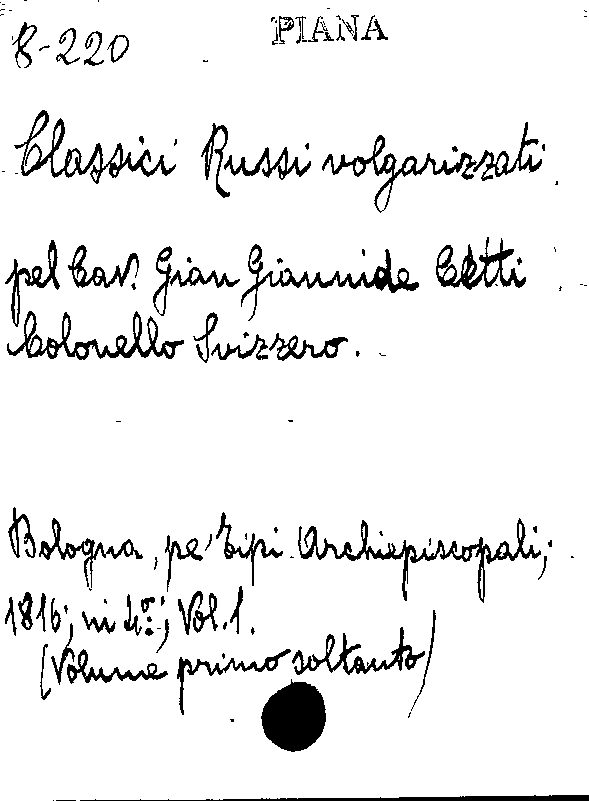 8-220
PIANA
Classici Russi volgarizzati
pel Cav. Gian Giannide Cetti
Colonello Svizzero.
Bologna, pe' Tipi Archiepiscopali;
1816; in 4º; Vol. 1.
(Volume primo soltanto)